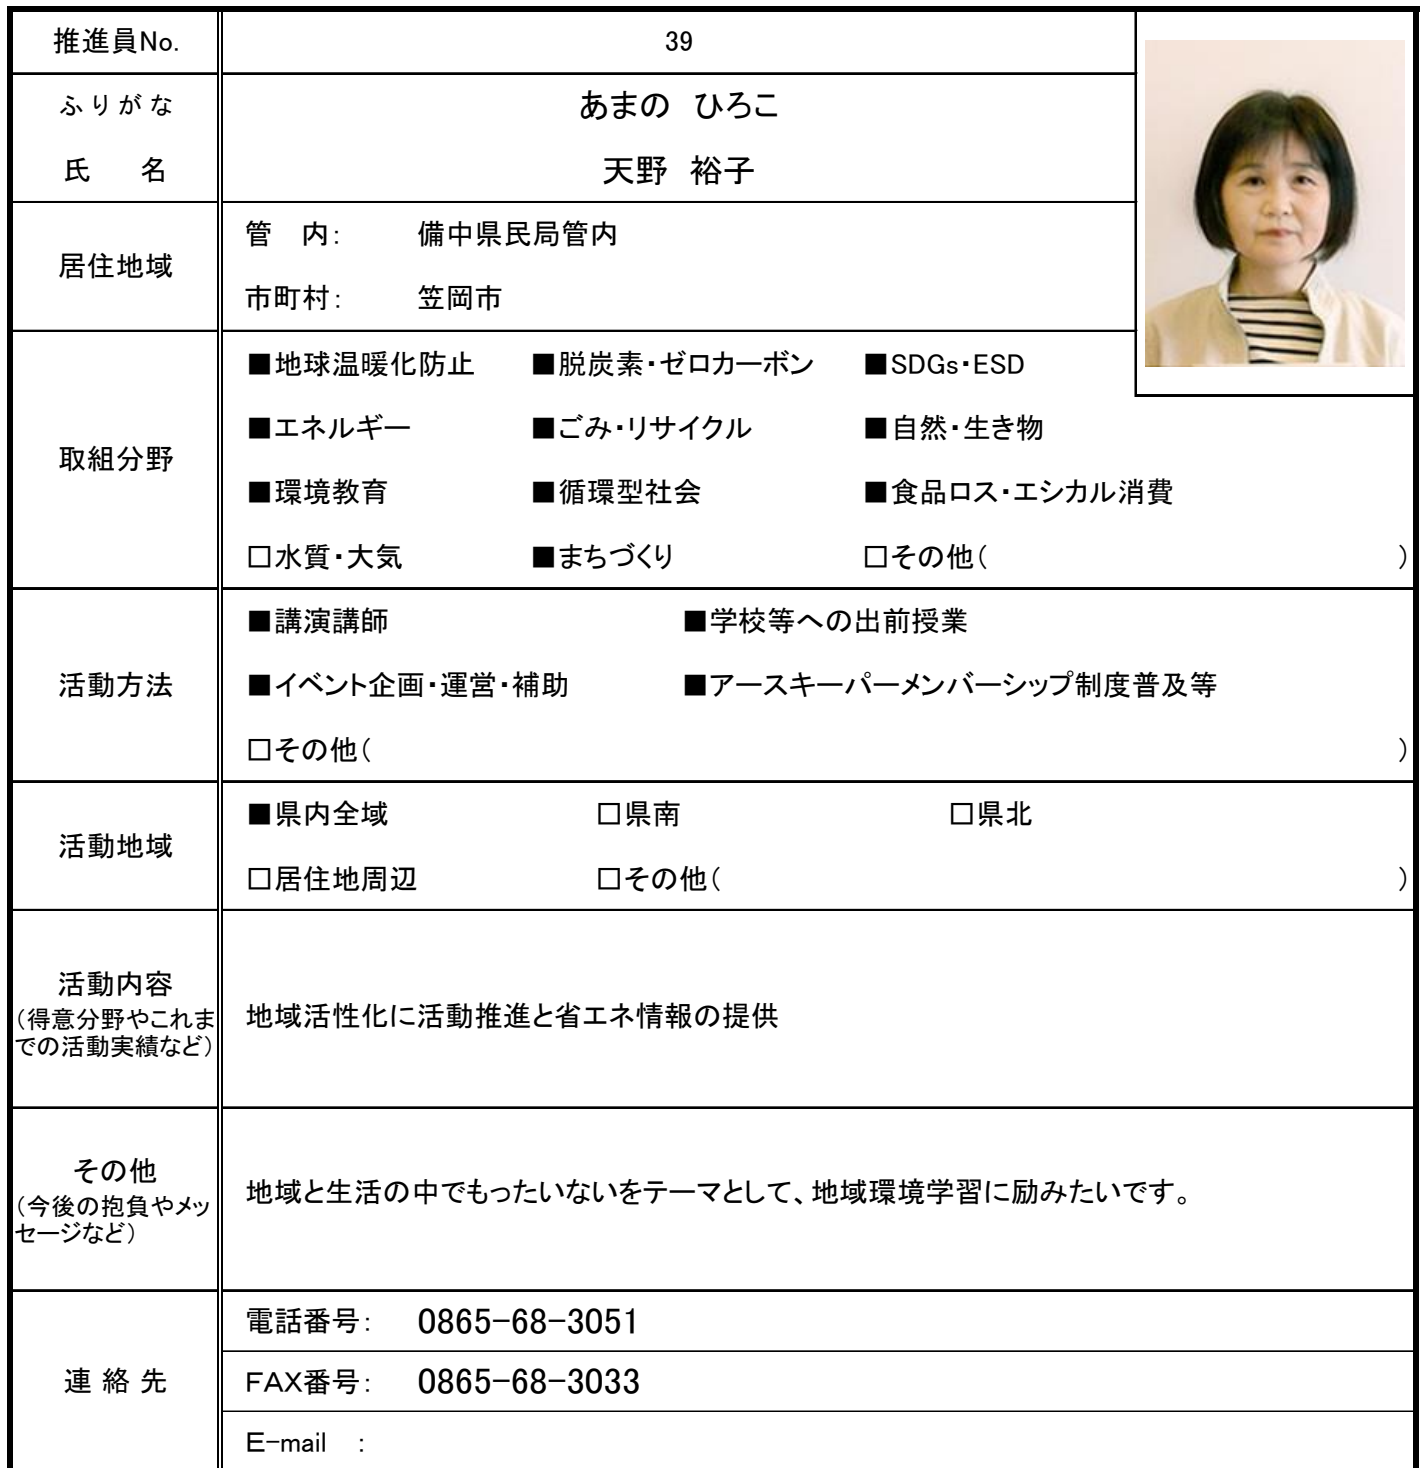 推進員No. 39
ふりがな あまの ひろこ
氏 名 天野 裕子
居住地域
管 内: 備中県民局管内
市町村: 笠岡市
取組分野
■地球温暖化防止 ■脱炭素・ゼロカーボン ■SDGs・ESD
■エネルギー ■ごみ・リサイクル ■自然・生き物
■環境教育 ■循環型社会 ■食品ロス・エシカル消費
□水質・大気 ■まちづくり □その他( )
活動方法
■講演講師 ■学校等への出前授業
■イベント企画・運営・補助 ■アースキーパーメンバーシップ制度普及等
□その他( )
活動地域
■県内全域 □県南 □県北
□居住地周辺 □その他( )
活動内容
(得意分野やこれま
での活動実績など)
地域活性化に活動推進と省エネ情報の提供
その他
(今後の抱負やメッ
セージなど)
地域と生活の中でもったいないをテーマとして、地域環境学習に励みたいです。
連 絡 先
電話番号: 0865-68-3051
FAX番号: 0865-68-3033
E-mail :